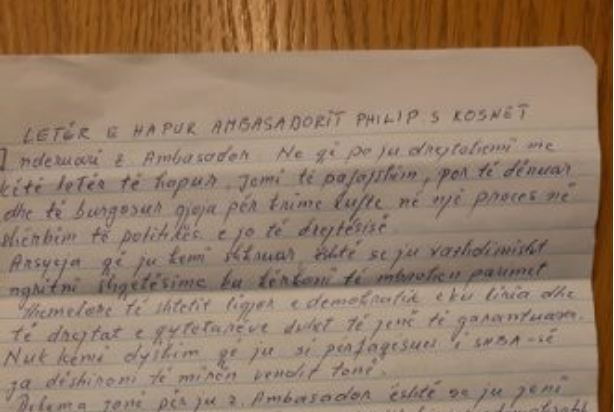 LETËR E HAPUR AMBASADORIT PHILIP S KOSNET
I nderuari z. Ambasador Ne që po ju drejtohemi me
këtë letër të hapur, jemi të pafajshëm, por të dënuar
dhe të burgosur gjoja për krime lufte në një proces në
shërbim të politikës e jo të drejtësisë.
Arsyeja që ju kemi shkruar, është se ju vazhdimisht
ngritni shqetësime ku kërkoni të mbrohen parimet
themelore të shtetit ligjor e demokratik e ku liria dhe
të drejtat e qytetarëve duhet të jenë të garantuara.
Nuk kemi dyshim që ju si përfaqësues i SHBA-së
ja dëshironi të mirën vendit tonë.
jonë për ju z. Ambasador është se ju jeni